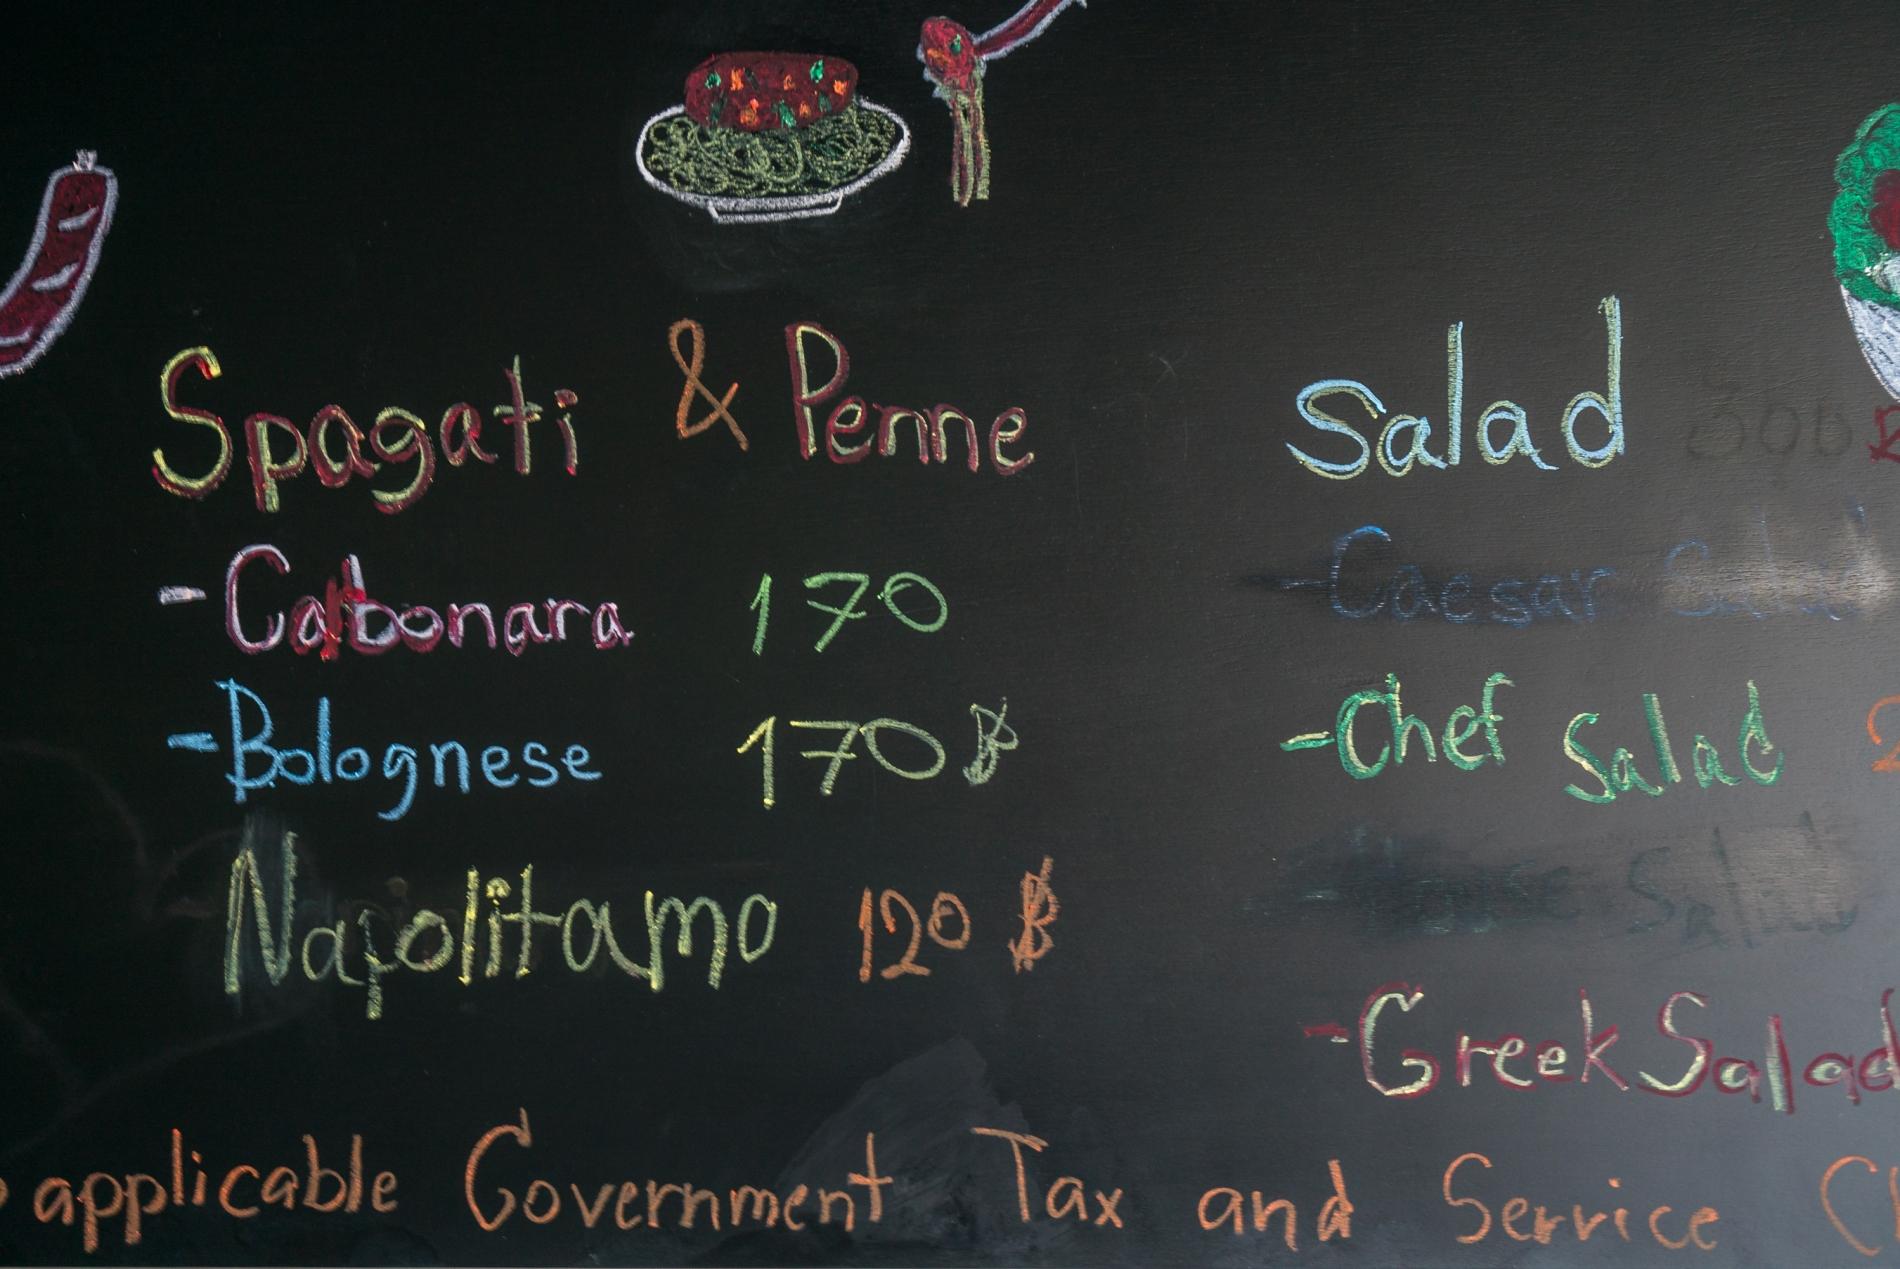 Spagati & Penne
- Carbonara 170
- Bolognese 170 ฿
Napolitamo 120 ฿
Salad
- Caesar Salad
- Chef Salad 2
Salad
- Greek Salad
applicable Government Tax and Service